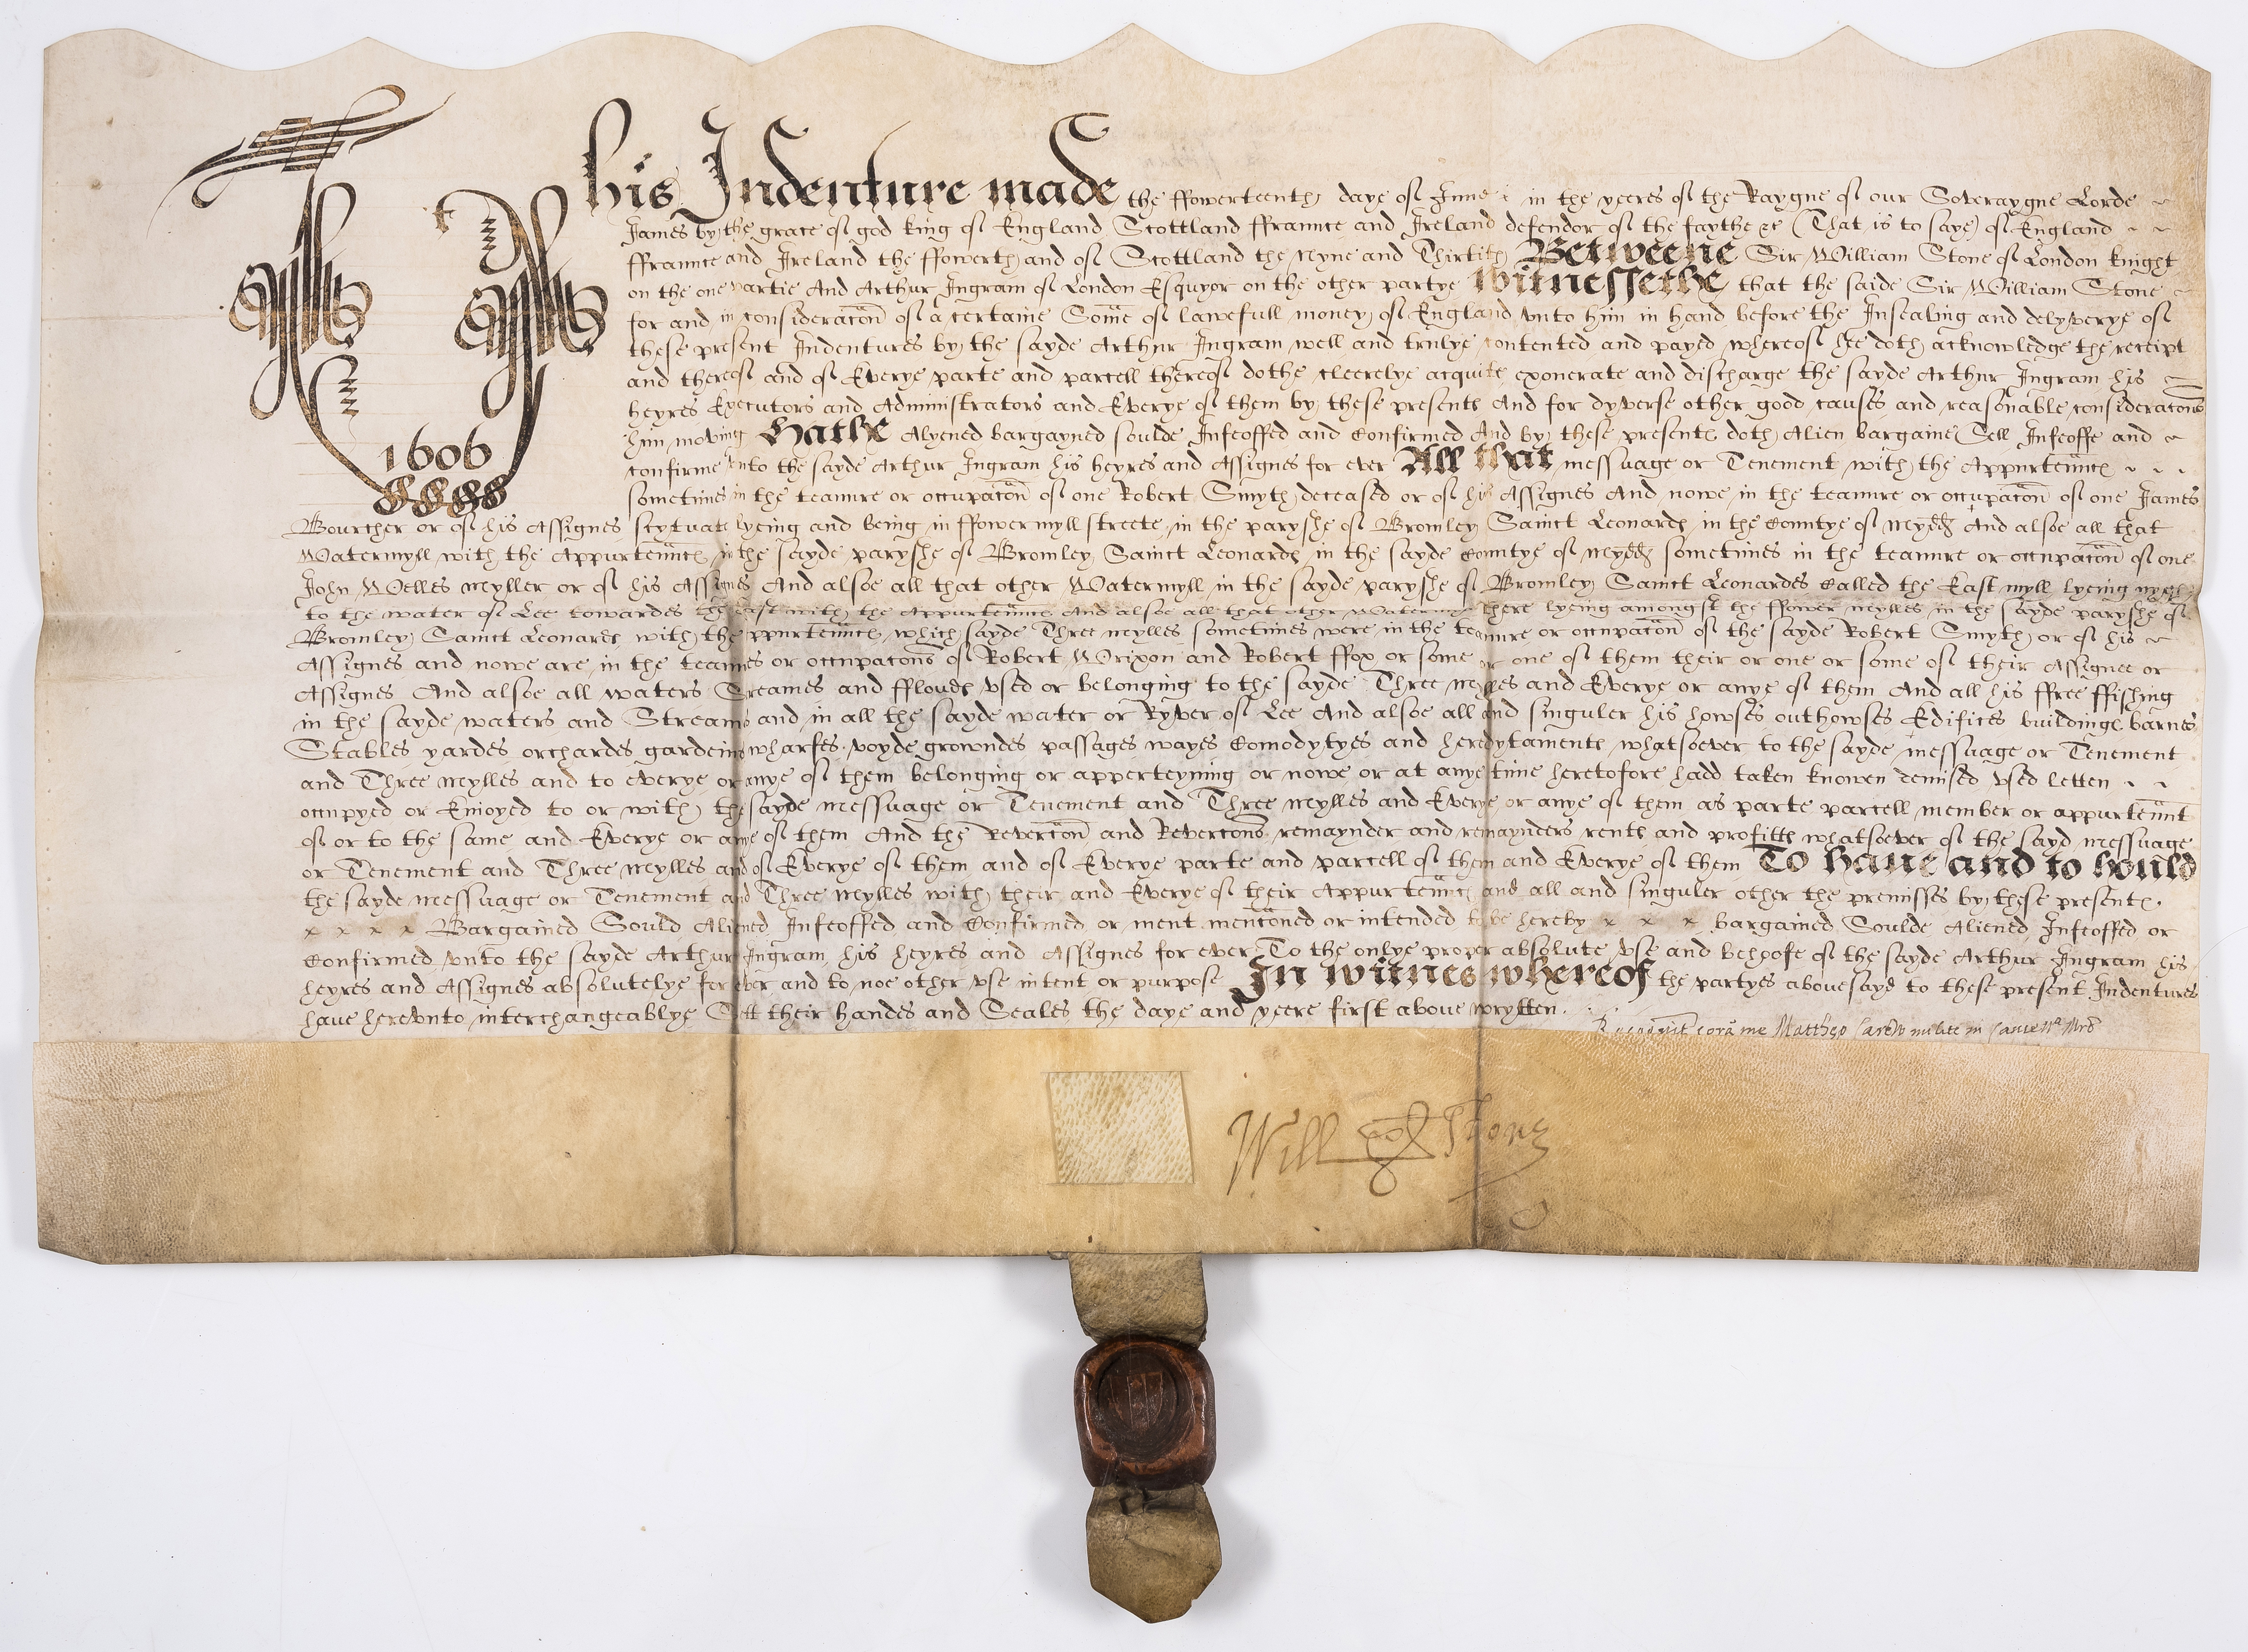 This Indenture made the ffowerteenth daye of June in the yeeres of the Raygne of our Soveraygne Lorde
James by the grace of god king of England Scottland ffraunce and Ireland defendor of the faythe &c (That is to saye) of England
ffraunce and Ireland the ffowerth and of Scottland the Nyne and Thirtith Betweene Sir William Stone of London knight
on the one partie And Arthur Ingram of London Esquyor on the other partye Witnessethe that the saide Sir William Stone
for and in consideracōn of a certaine Somē of lawefull money of England vnto him in hand before the Insealing and delyverye of
these present Indentures by the sayde Arthur Ingram well and trulye contented and payed whereof he doth acknowledge the receipt
and thereof and of Everye parte and parcell thereof dothe cleerelye acquite exonerate and discharge the sayde Arthur Ingram his
heyres Executors and Administrators and Everye of them by these presents And for dyverse other good causes and reasonable consideracons
him moving Hathe Alyened bargayned soulde Infeoffed and Confirmed And by these presents doth Alien bargaine Sell Infeoffe and
confirme vnto the sayde Arthur Ingram his heyres and Assignes for ever All that messuage or Tenement with the Appurtennces
1606
sometimes in the teanure or occupacōn of one Robert Smyth deceased or of his Assignes And nowe in the teanure or occupacōn of one James
Bourcher or of his Assignes scytuate lyeing and being in ffowermyll streete in the paryshe of Bromley Sainct Leonards in the Countye of Midd And alsoe all that
Watermyll with the Appurtennces in the sayde paryshe of Bromley Sainct Leonards in the sayde Countye of Midd sometimes in the teanure or occupacōn of one
John Welles Myller or of his Assignes And alsoe all that other Watermyll in the sayde paryshe of Bromley Sainct Leonardes Called the East myll lyeing nyghe
to the water of Lee towardes the east with the Appurtennces And alsoe all that other Watermyll there lyeing amongst the ffower Mylles in the sayde paryshe of
Bromley Sainct Leonards with the appurtennces which sayde Three Mylles sometimes were in the teanure or occupacōn of the sayde Robert Smyth or of his
Assignes and nowe are in the teanures or occupacons of Robert Wrixon and Robert ffox or some or one of them their or one or some of their Assignee or
Assignes And alsoe all waters Streames and ffloudes vsed or belonging to the sayde Three Mylles and Everye or anye of them And all his ffree ffishing
in the sayde waters and Streams and in all the sayde water or Ryver of Lee And alsoe all and singuler his howses outhowses Edifices buildinge barnes
Stables yardes orchardes gardeins wharfes voyde growndes passages wayes Comodytyes and heredytaments whatsoever to the sayde messuage or Tenement
and Three Mylles and to everye or anye of them belonging or apperteyning or nowe or at anye time heretofore hadd taken knowen demised vsed letten
occupyed or Enioyed to or with the sayde messuage or Tenement and Three Mylles and Everye or anye of them as parte parcell member or appurtennt
of or to the same and Everye or anye of them And the Revercōn and Revercons remaynder and remaynders rents and profitts whatsoever of the sayd messuage
or Tenement and Three Mylles and of Everye of them and of Everye parte and parcell of them and Everye of them To haue and to hould
the sayde messuage or Tenement and Three Mylles with their and Everye of their Appurtennces and all and singuler other the premisses by these presents
x x x x Bargained Sould Aliened Infeoffed and Confirmed or ment mencōned or intended to be hereby x x x bargained Soulde Aliened Infeoffed or
Confirmed vnto the sayde Arthur Ingram his heyres and Assignes for ever To the onlye proper absolute vse and behoofe of the sayde Arthur Ingram his
heyres and Assignes absolutelye for ever and to noe other vse intent or purpose In witnes whereof the partyes abouesayd to these present Indentures
have herevnto interchangeablye Sett their handes and Seales the daye and yeere first aboue wrytten.
Recognit corā me Mattheo Carew milite in Canc
Will Stone